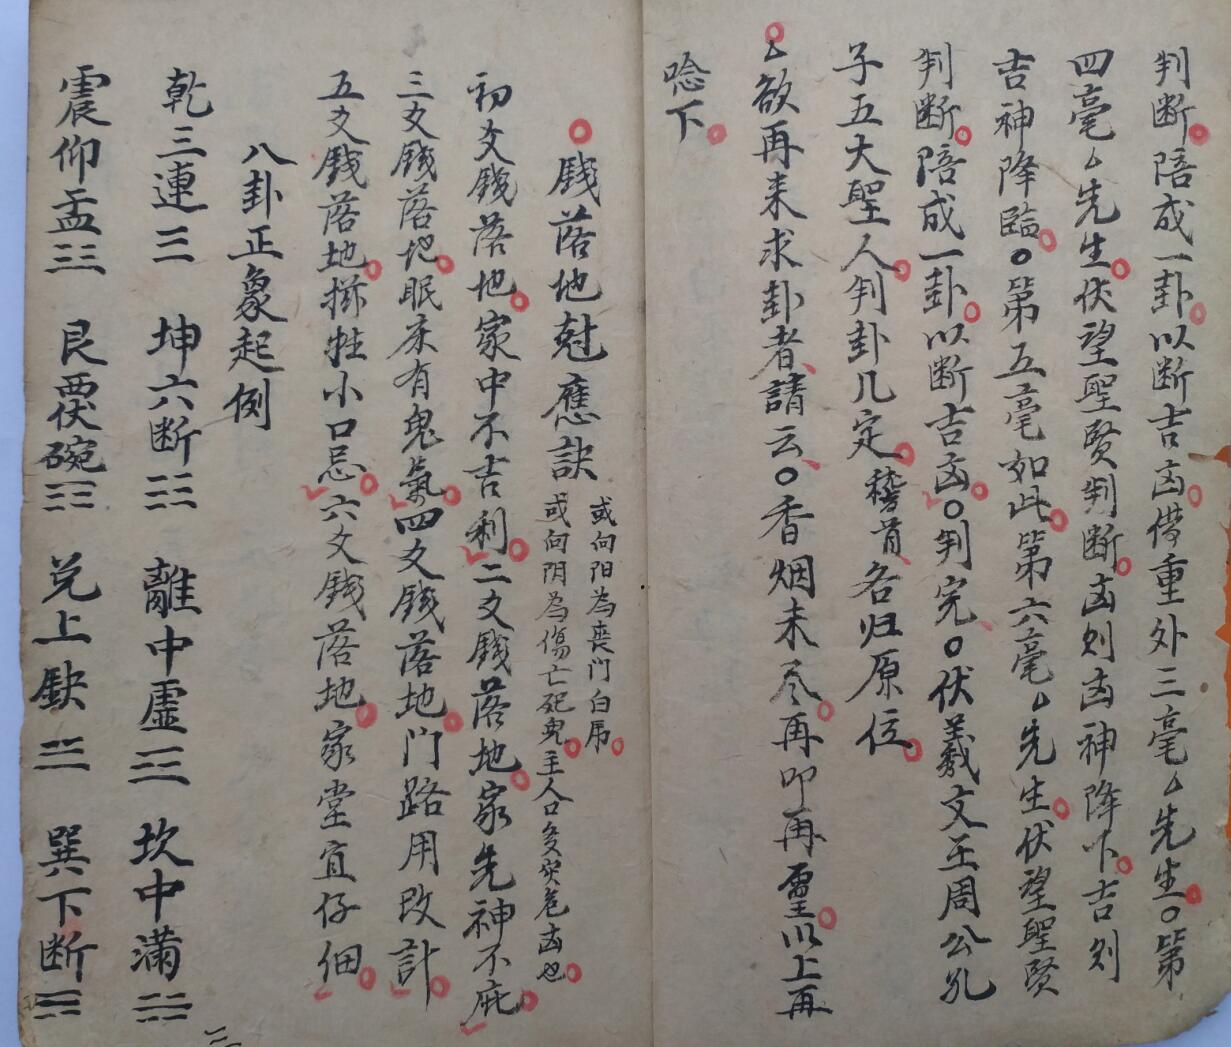 判断陪成一卦以断吉凶借重外三毫厶先生○第
四毫厶先生伏望聖賢判断凶则凶神降下吉则
吉神降臨○第五毫如此第六毫厶先生伏望聖賢
判断陪成一卦以断吉凶○判完○伏羲文王周公孔
子五大聖人判卦几定稽首各归原位
厶欲再来求卦者請云○香烟未尽再叩再靈以上再
唸下
○錢落地尅應訣
或向阳為喪门白吊
或向阴為傷亡死鬼主人口多灾危凶也
初爻錢落地家中不吉利二爻錢落地家先神不庇
三爻錢落地眠床有鬼氣四爻錢落地门路用改計
五爻錢落地牲小口忌六爻錢落地家堂宜仔细
八卦正象起例
乾三連☰ 坤六断☷ 離中虚☲ 坎中滿☵
震仰盂☳ 艮覆碗☶ 兑上缺☱ 巽下断☴